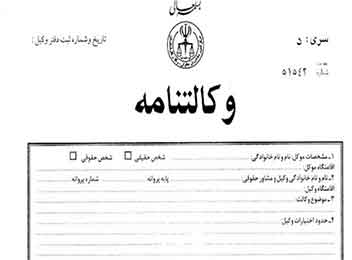 بسمه تعالی
سری: د
تاریخ و شماره ثبت دفتر وکیل:
شماره ۵۱۵۴۲
وکالتنامه
۱ـ مشخصات موکل: نام و نام خانوادگی: شخص حقیقی □ شخص حقوقی □
اقامتگاه موکل:
۲ـ نام و نام خانوادگی وکیل و مشاور حقوقی: پایه پروانه شماره پروانه:
اقامتگاه وکیل:
۳ـ موضوع وکالت:
۴ـ حدود اختیارات وکیل: